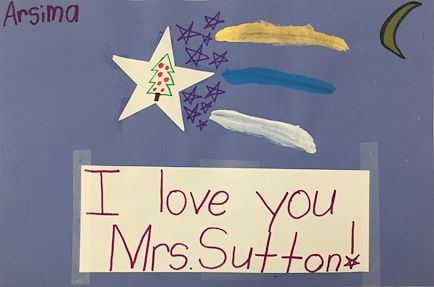 Arsima
I love you
Mrs. Sutton!